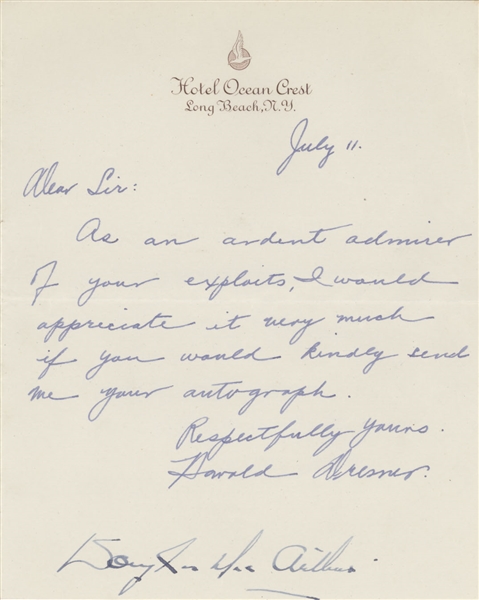 Hotel Ocean Crest
Long Beach, N.Y.
July 11.
Dear Sir:
As an ardent admirer
of your exploits, I would
appreciate it very much
if you would kindly send
me your autograph.
Respectfully yours.
Harold Dresner.
Douglas MacArthur